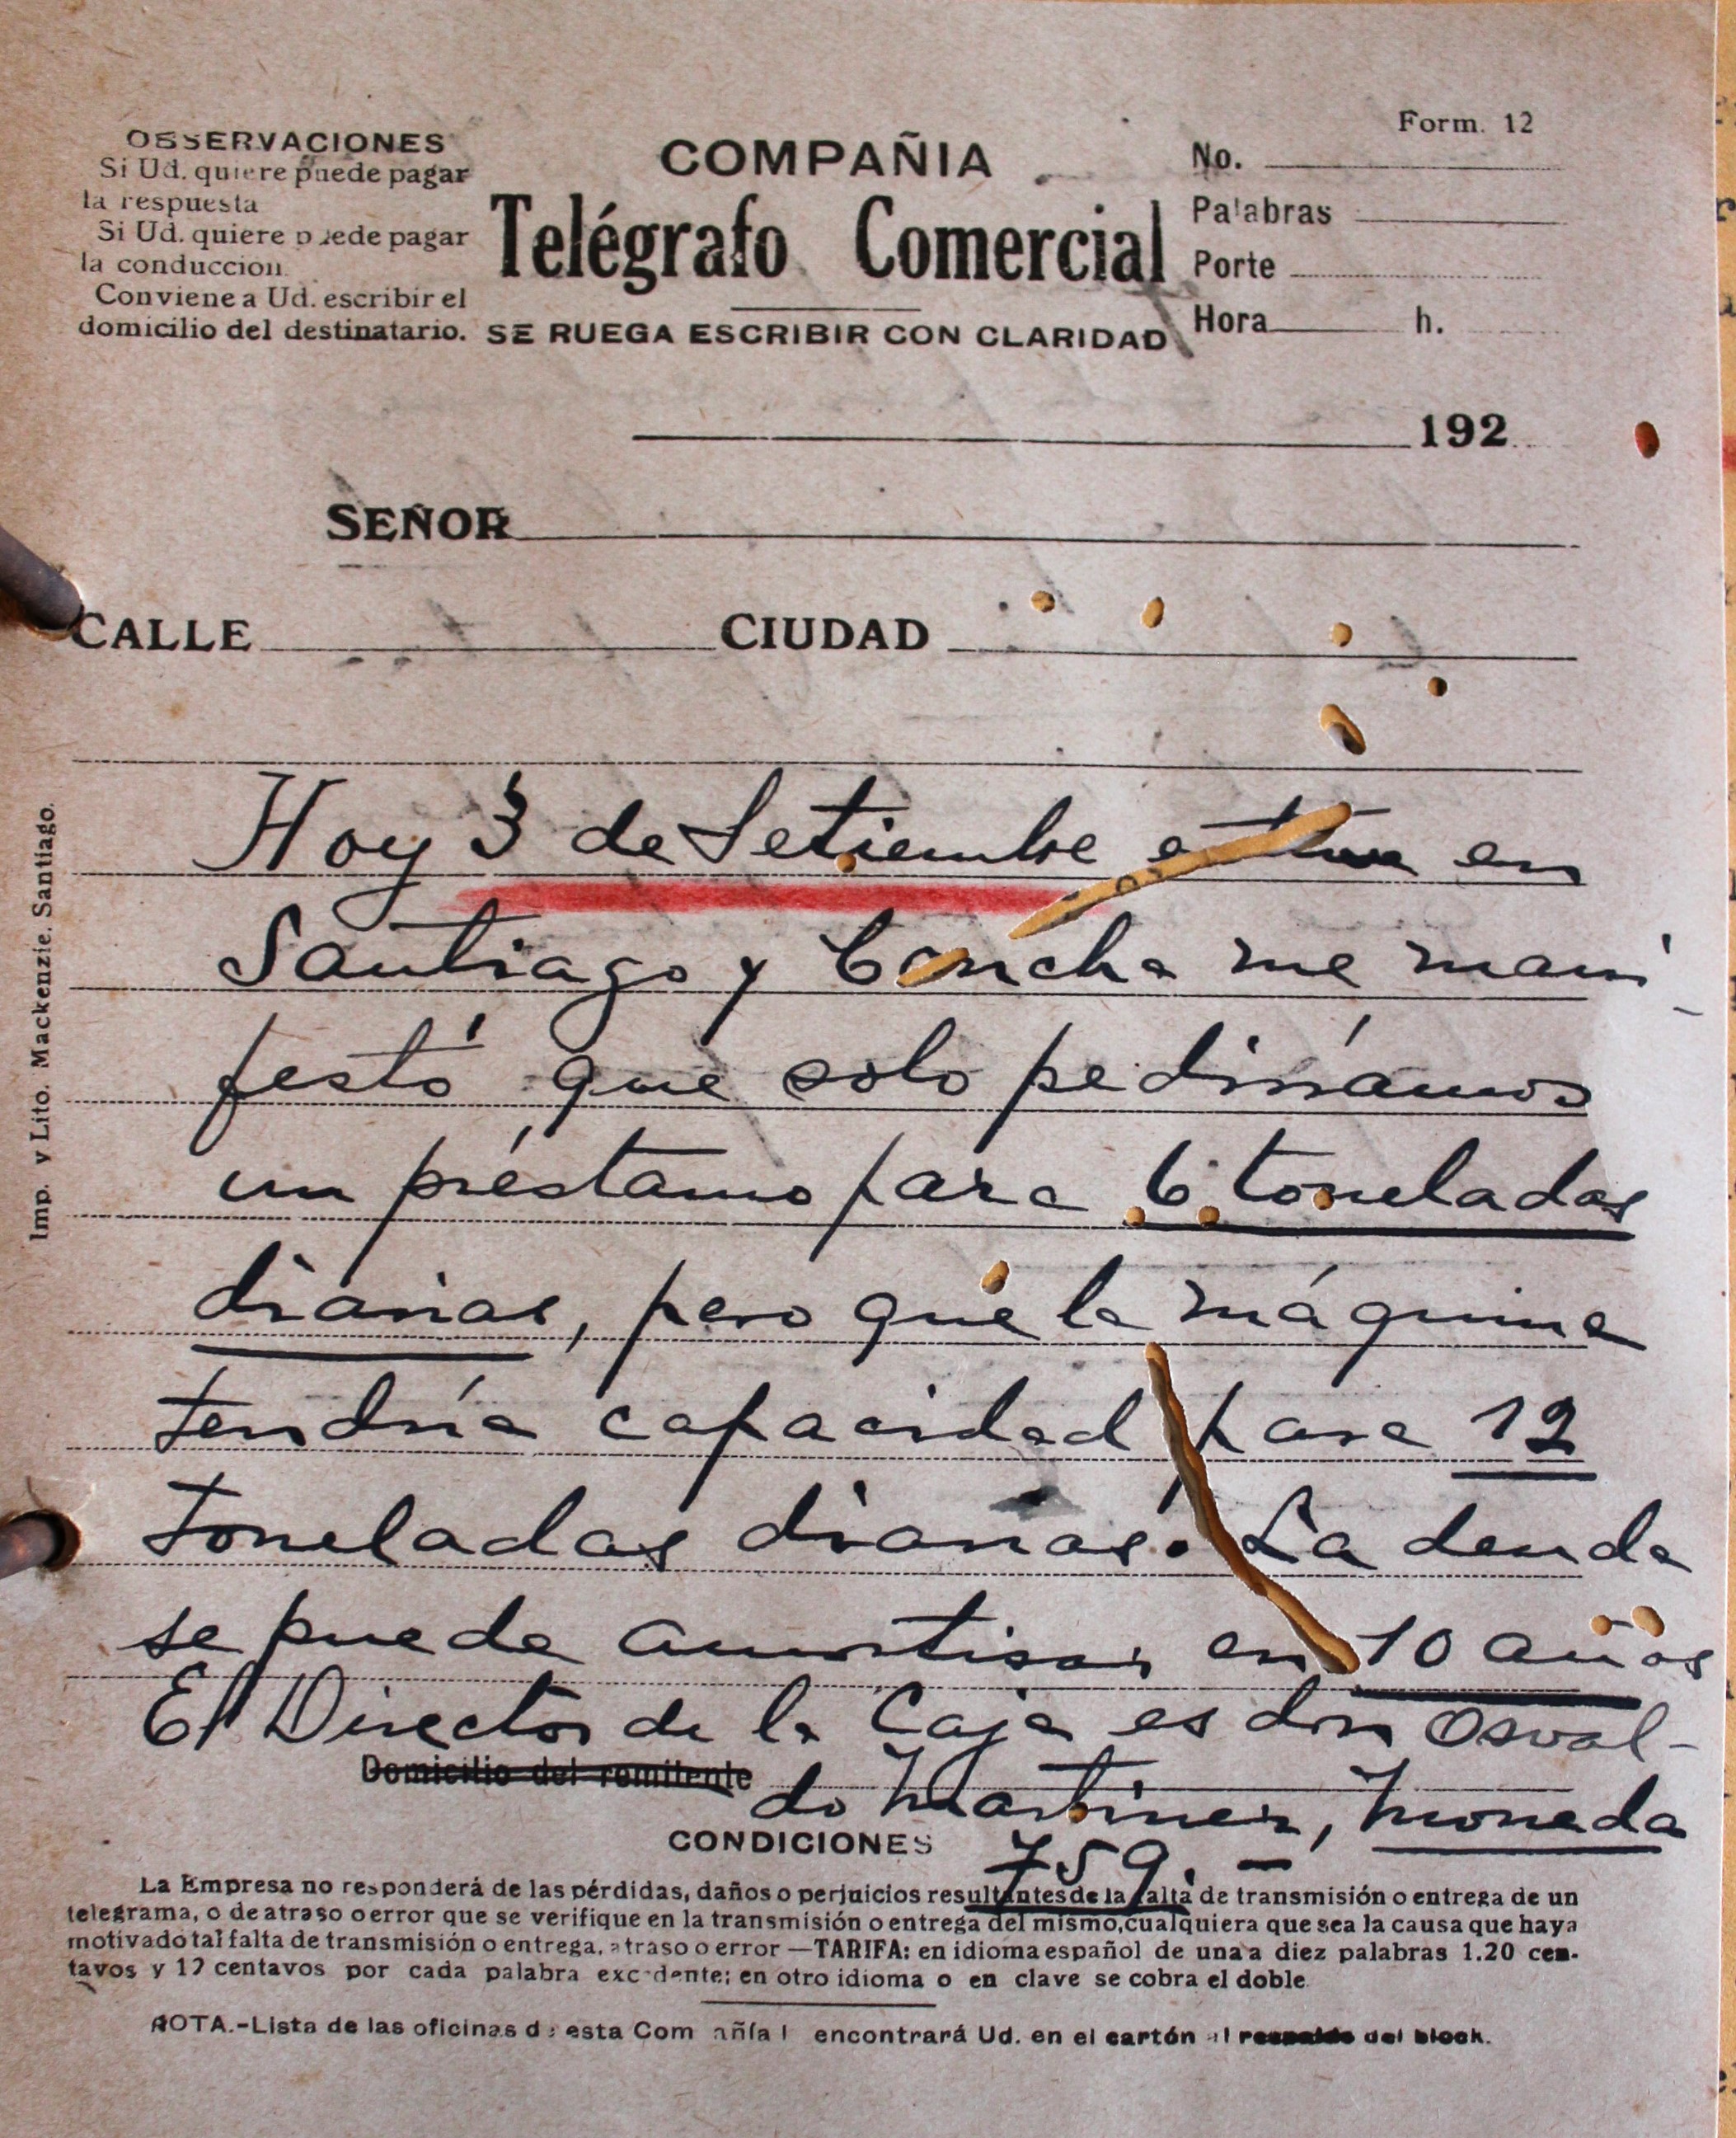 Form. 12
OBSERVACIONES
Si Ud. quiere puede pagar
la respuesta
Si Ud. quiere puede pagar
la conduccion.
Conviene a Ud. escribir el
domicilio del destinatario.
COMPAÑIA
Telégrafo Comercial
SE RUEGA ESCRIBIR CON CLARIDAD
No.
Palabras
Porte
Hora h.
192
SEÑOR
CALLE CIUDAD
Hoy 3 de Setiembre estuve en
Santiago y Concha me mani-
festó que solo pediríamos
un préstamo para 6 toneladas
diarias, pero que la máquina
tendría capacidad para 12
toneladas diarias. La deuda
se puede amortisar en 10 años
El Director de la Caja es don Osval-
Domicilio del remitente
do Martinez, Moneda
759. -
CONDICIONES
La Empresa no responderá de las pérdidas, daños o perjuicios resultantes de la falta de transmisión o entrega de un
telegrama, o de atraso o error que se verifique en la transmisión o entrega del mismo, cualquiera que sea la causa que haya
motivado tal falta de transmisión o entrega, atraso o error — TARIFA: en idioma español de una a diez palabras 1.20 cen-
tavos y 12 centavos por cada palabra excedente; en otro idioma o en clave se cobra el doble.
NOTA.-Lista de las oficinas de esta Compañía encontrará Ud. en el cartón al respaldo del block.
Imp. y Lito. Mackenzie. Santiago.